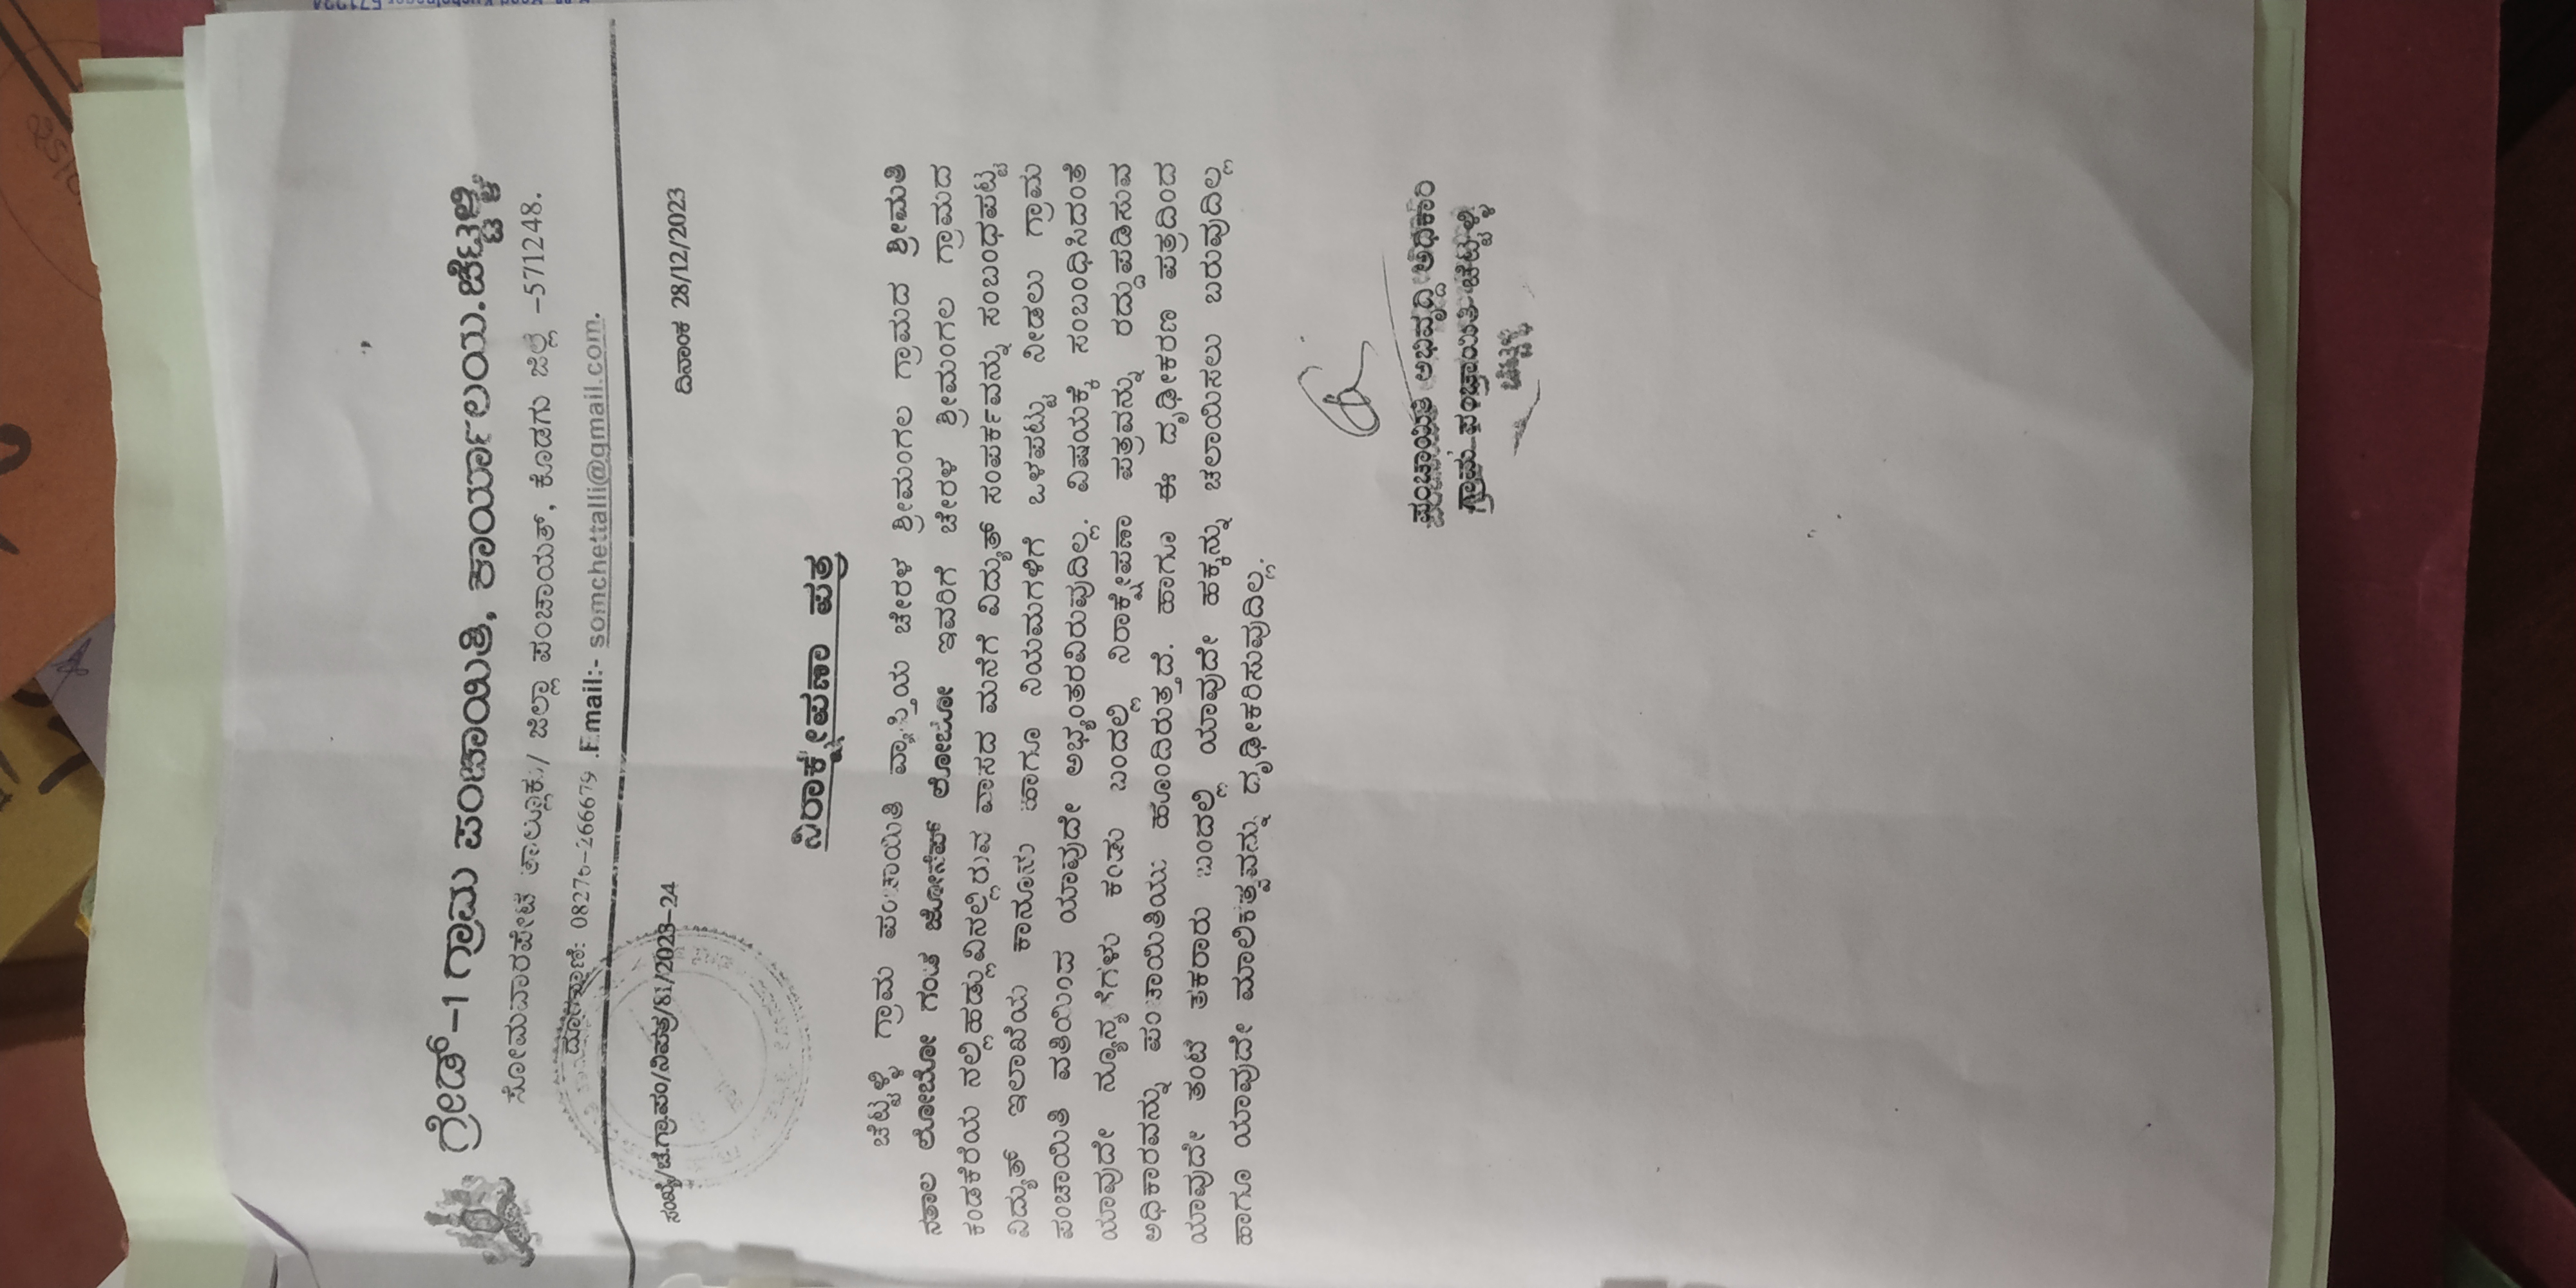 ಗ್ರೇಡ್-1 ಗ್ರಾಮ ಪಂಚಾಯಿತಿ, ಕಾರ್ಯಾಲಯ.ಚೆಟ್ಟಳ್ಳಿ
ಸೋಮವಾರಪೇಟೆ ತಾಲ್ಲೂಕು/ ಜಿಲ್ಲಾ ಪಂಚಾಯತ್, ಕೊಡಗು ಜಿಲ್ಲೆ -571248.
ದೂರವಾಣಿ: 08276-266679 .Email:- somchettalli@gmail.com.
ಸಂಖ್ಯೆ/ಚೆ.ಗ್ರಾಪಂ/ನಿಪತ್ರ/81/2023-24 ದಿನಾಂಕ 28/12/2023
ನಿರಾಕ್ಷೇಪಣಾ ಪತ್ರ
ಚೆಟ್ಟಳ್ಳಿ ಗ್ರಾಮ ಪಂಚಾಯಿತಿ ವ್ಯಾಪ್ತಿಯ ಚೇರಳ ಶ್ರೀಮಂಗಲ ಗ್ರಾಮದ ಶ್ರೀಮತಿ
ನತಾಲ ಲೋಬೋ ಗಂಡ ಜೋಸೆಫ್ ಲೋಬೋ ಇವರಿಗೆ ಚೇರಳ ಶ್ರೀಮಂಗಲ ಗ್ರಾಮದ
ಕಂಡಕೆರೆಯ ನಲ್ಲಿಹಡ್ಲುವಿನಲ್ಲಿರುವ ವಾಸದ ಮನೆಗೆ ವಿದ್ಯುತ್ ಸಂಪರ್ಕವನ್ನು ಸಂಬಂಧಪಟ್ಟ
ವಿದ್ಯುತ್ ಇಲಾಖೆಯ ಕಾನೂನು ಹಾಗೂ ನಿಯಮಗಳಿಗೆ ಒಳಪಟ್ಟು ನೀಡಲು ಗ್ರಾಮ
ಪಂಚಾಯಿತಿ ವತಿಯಿಂದ ಯಾವುದೇ ಅಭ್ಯಂತರವಿರುವುದಿಲ್ಲ. ವಿಷಯಕ್ಕೆ ಸಂಬಂಧಿಸಿದಂತೆ
ಯಾವುದೇ ನ್ಯೂನ್ಯತೆಗಳು ಕಂಡು ಬಂದಲ್ಲಿ ನಿರಾಕ್ಷೇಪಣಾ ಪತ್ರವನ್ನು ರದ್ದುಪಡಿಸುವ
ಅಧಿಕಾರವನ್ನು ಪಂಚಾಯಿತಿಯು ಹೊಂದಿರುತ್ತದೆ. ಹಾಗೂ ಈ ದೃಢೀಕರಣ ಪತ್ರದಿಂದ
ಯಾವುದೇ ತಂಟೆ ತಕರಾರು ಬಂದಲ್ಲಿ ಯಾವುದೇ ಹಕ್ಕನ್ನು ಚಲಾಯಿಸಲು ಬರುವುದಿಲ್ಲ
ಹಾಗೂ ಯಾವುದೇ ಮಾಲಿಕತ್ವವನ್ನು ದೃಢೀಕರಿಸುವುದಿಲ್ಲ.
ಪಂಚಾಯಿತಿ ಅಭಿವೃದ್ಧಿ ಅಧಿಕಾರಿ
ಗ್ರಾಮ ಪಂಚಾಯಿತಿ ಚೆಟ್ಟಳ್ಳಿ
ಚೆಟ್ಟಳ್ಳಿ